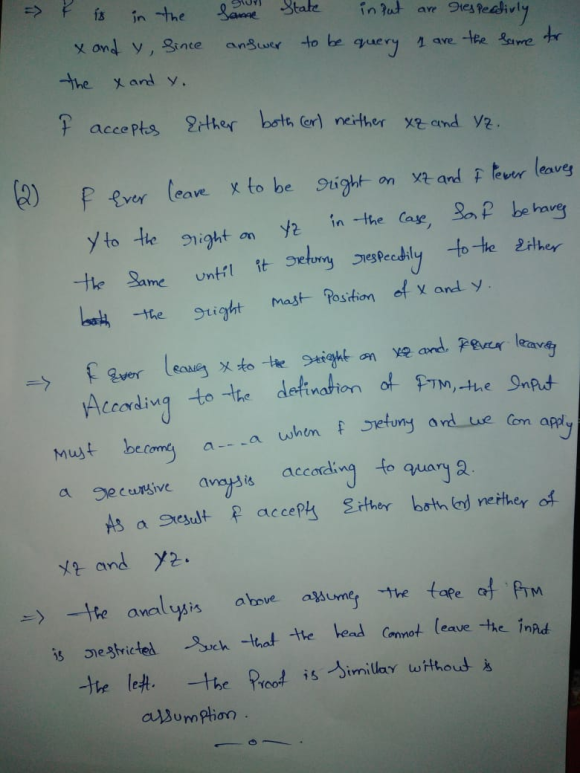 => F is in the same State input are respectivly
x and y, Since answer to be query 1 are the same for
the x and y.
F accepts Either both (or) neither xz and yz.
(2) F Ever leave x to be right on xz and F lever leaves
y to the right on yz in the case, So F behaves
the Same until it returns respectily to the Either
the right mast Position of x and y.
=> F Ever leaves x to the right on xz and F Ever leaves
According to the defination of FTM, the Input
Must becomes a---a when F returns and we can apply
a recursive anaysis according to quary 2.
As a result F accepts Either both (or) neither of
xz and yz.
=> the analysis above assumes the tape of FTM
is restricted Such that the head Cannot leave the input
the left. the Proof is Simillar without is
assumption.